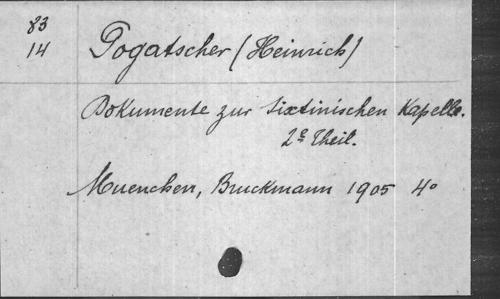 83
14
Pogatscher (Heinrich)
Dokumente zur Sixtinischen Kapelle.
2e Theil.
Muenchen, Bruckmann 1905 4°